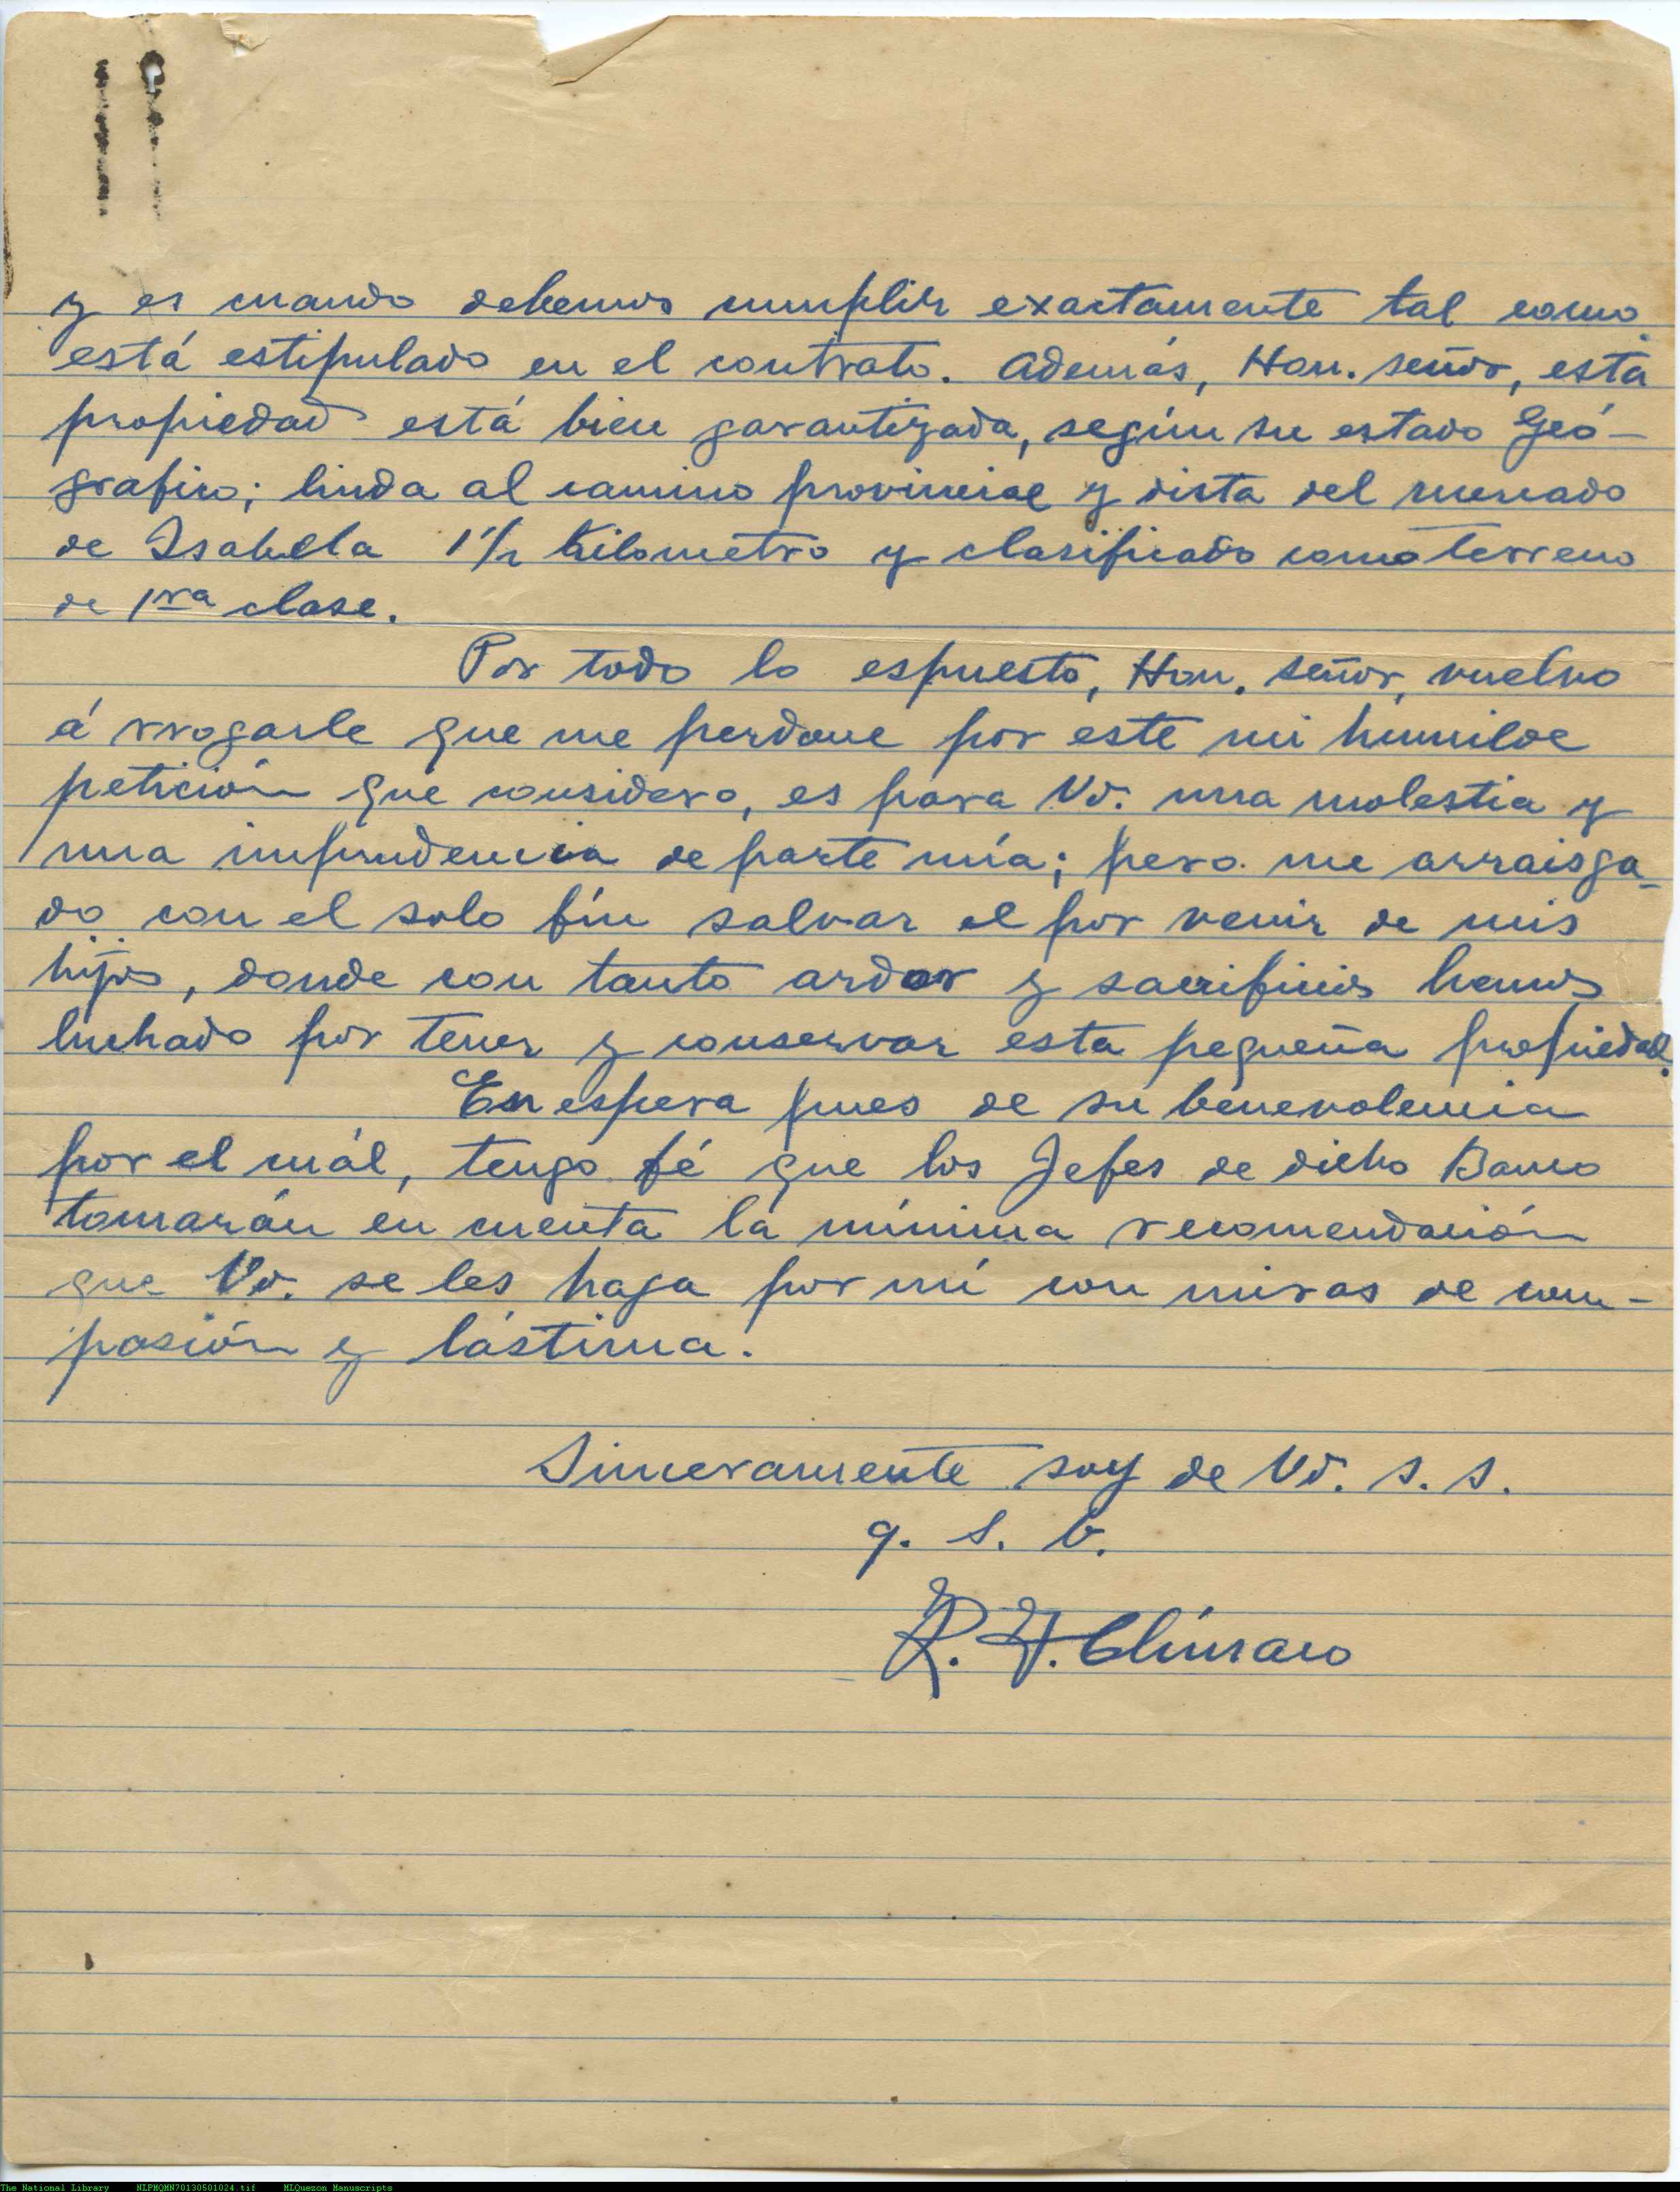 y es cuando debemos cumplir exactamente tal como
está estipulado en el contrato. Además, Hon. señor, esta
propiedad está bien garantizada, según su estado Geó-
grafico; linda al camino provincial y dista del mercado
de Isabella 1 1/2 Kilometro y clasificado como terreno
de 1ra clase.
Por todo lo espuesto, Hon. señor, vuelvo
á rrogarle que me perdone por este mi humilde
petición que considero, es para Vd. una molestia y
una imprudencia de parte mía; pero me arraisga-
do con el solo fín salvar el por venir de mis
hijos, donde con tanto ardor y sacrificios hemos
luchado por tener y conservar esta pequeña propiedad.
En espera pues de su benevolencia
por el cuál, tengo fé que los Jefes de dicho Banco
tomarán en cuenta la mínima recomendación
que Vd. se les haga por mí con miras de com-
pasión y lástima.
Sinceramente soy de Vd. s. s.
q. s. b.
R. Y. Climaco
The National Library NLPMQMN70130501024.tif MLQuezon Manuscripts